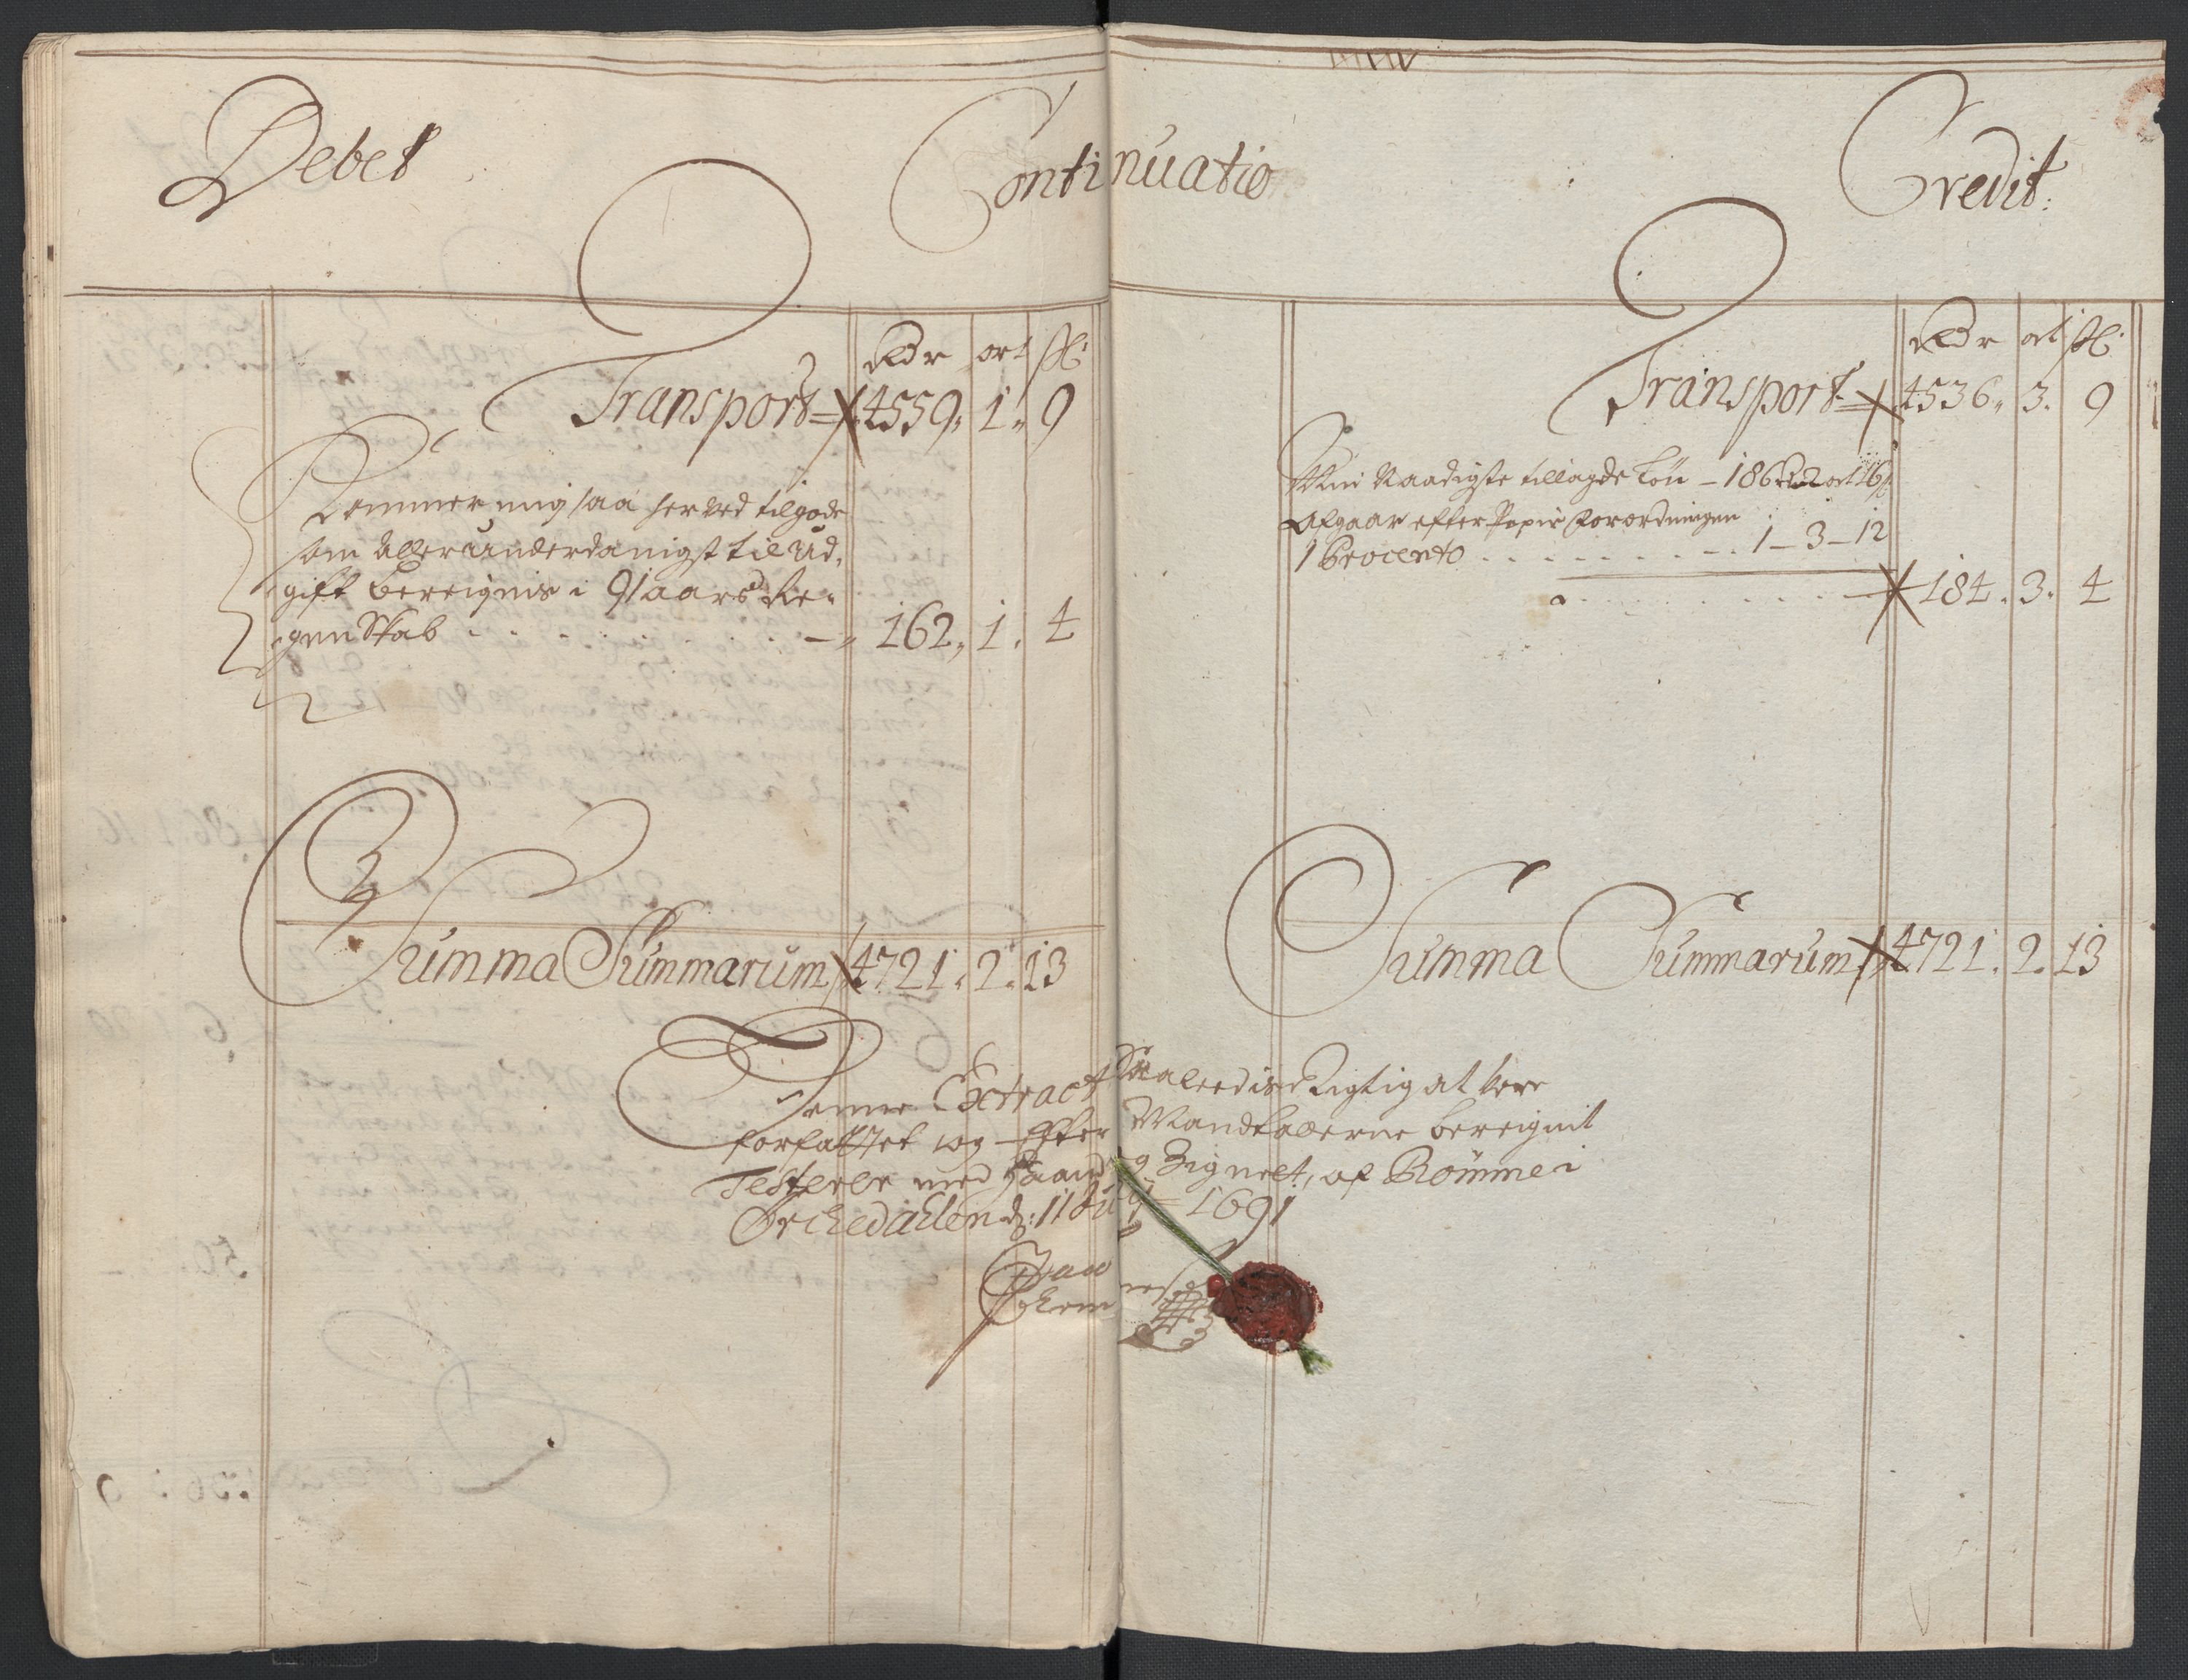 Debet Continuatio Credit.
Rdr ort ſk:
Transport 4559. 1. 9
Kommer mig saa herved tilgode
som Allerunderdanigst til Ud,
gift bereignis i 91 aars Re-
genskab . . . . . . . . . 162, 1. 4
Summa Summarum 4721. 2. 13
Rdr ort ſk:
Transport 4536. 3. 9
Min Naadigste tillagde Løn – 186 Rd 2 ort 16 ſ
Afgaar efter Papir Forordningen
1 Procento . . . . . . . . . 1 – 3 – 12
184. 3. 4
Summa Summarum 4721. 2. 13
Denne Extract Saaledis Rigtig at were
forfattet og Efter Mandtallerne bereignit
Testerer med Haand og Zignelt, af Rømme i
Orckedahlen d: 11 Aug 1691